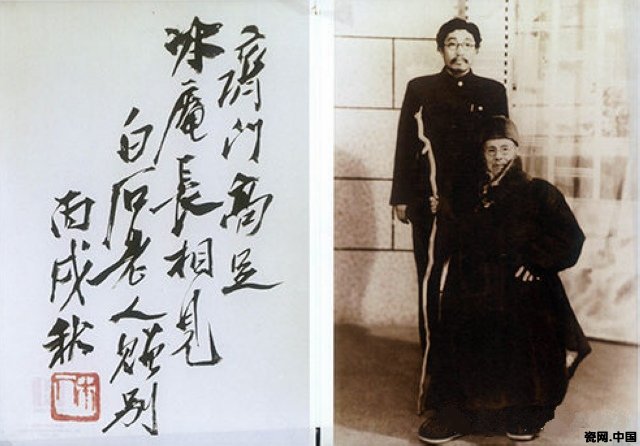 齊门高足
冰庵長相見
白石老人贈别
丙戌秋
瓷网.中国